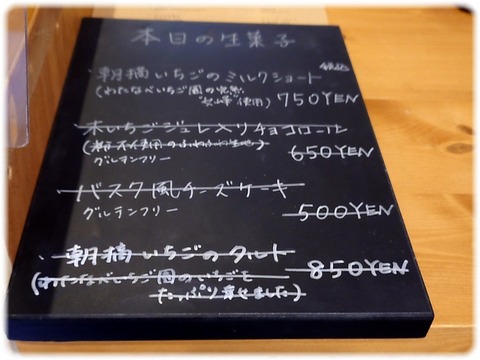 本日の生菓子
税込
・朝摘いちごのミルクショート
(わたなべいちご園の完熟
使用) 750YEN
木いちごジュレ入りチョコロール
650YEN
グルテンフリー
バスク風チーズケーキ
グルテンフリー 500YEN
・朝摘いちごのタルト
(わたなべいちご園のいちごを 850YEN
たっぷり乗せました)